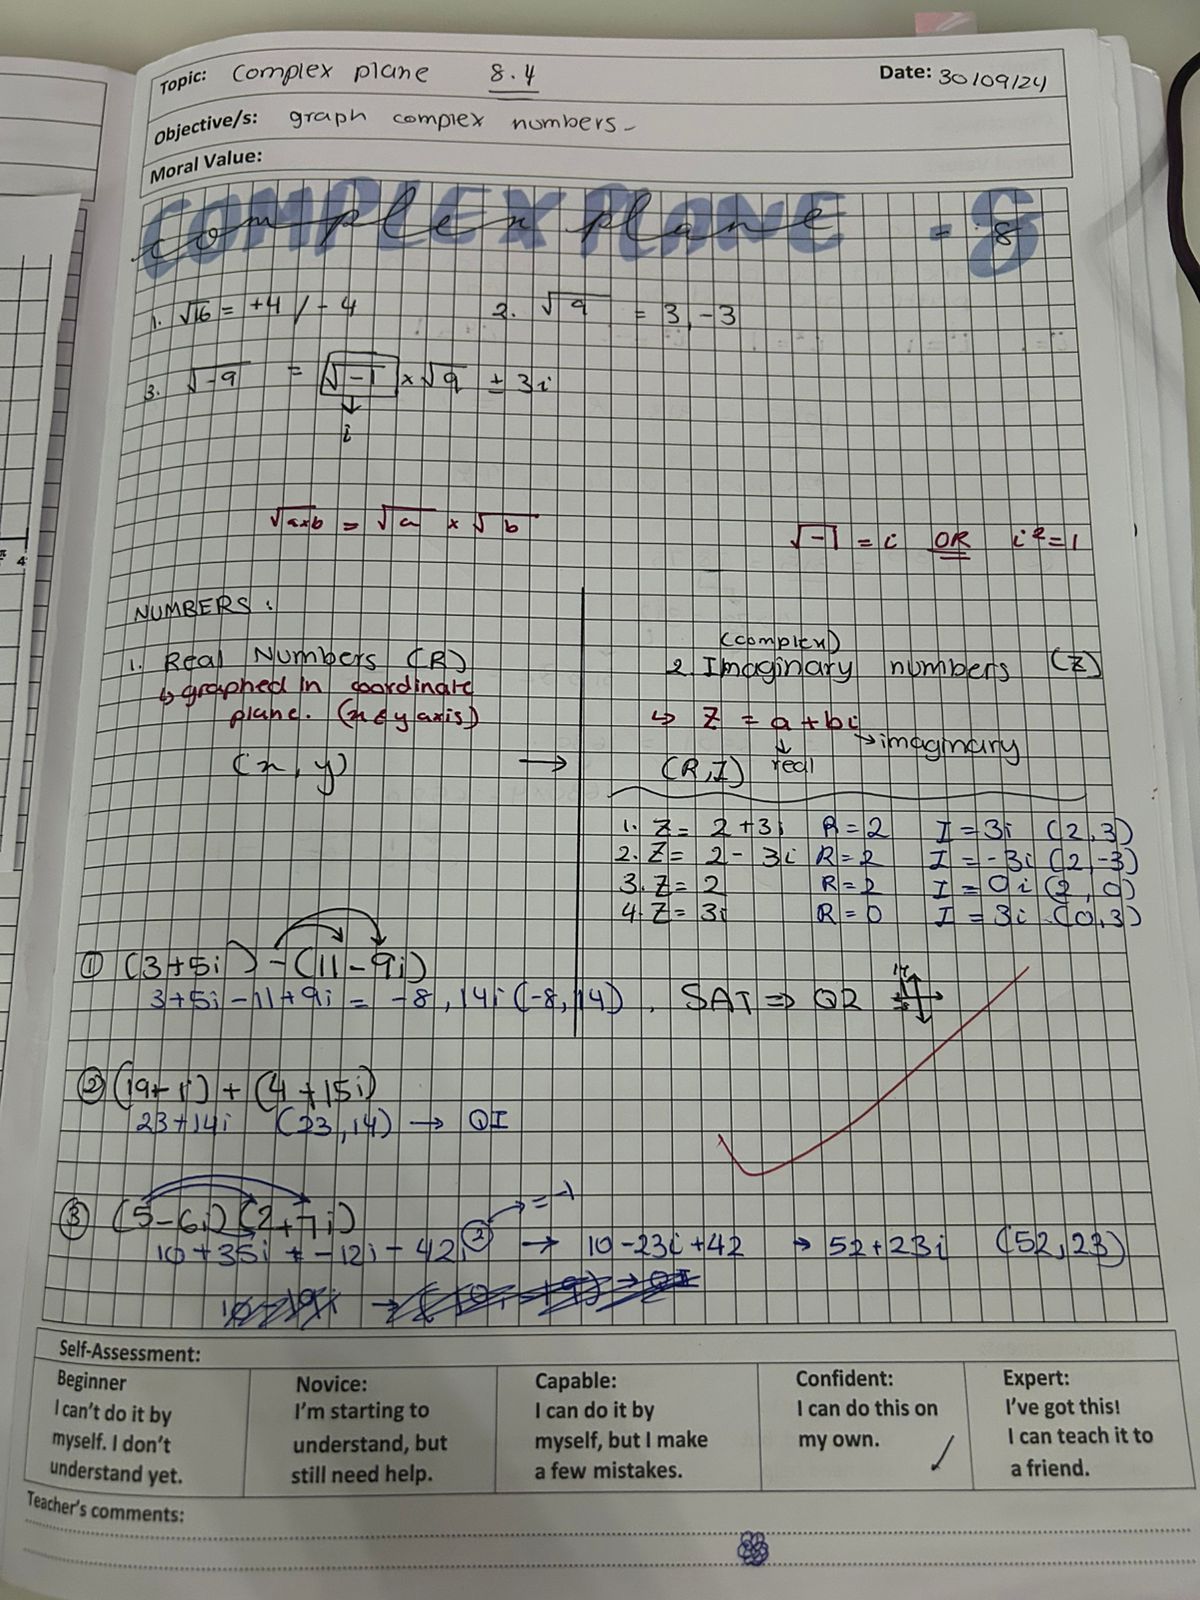 Topic: Complex plane 8.4 Date: 30/09/24
Objective/s: graph complex numbers-
Moral Value:
COMPLEX PLANE - 8
complex plane = 8
1. √16 = +4 / -4 2. √9 = 3, -3
3. √-9 = √-1 × √9 ± 3i
↓
i
√a×b = √a × √b
√-1 = i OR i²=1
NUMBERS:
1. Real Numbers (R)
↳ graphed in coordinate
plane. (x & y axis)
(x, y) →
(complex)
2. Imaginary numbers (Z)
↳ Z = a + bi
↓ → imaginary
(R, I) real
1. Z = 2 + 3i R = 2 I = 3i (2, 3)
2. Z = 2 - 3i R = 2 I = -3i (2, -3)
3. Z = 2 R = 2 I = 0i (2, 0)
4. Z = 3i R = 0 I = 3i (0, 3)
① (3+5i) - (11-9i)
3+5i-11+9i = -8, 14i (-8, 14). SAT ⇒ Q2
② (19-i) + (4+15i)
23+14i (23, 14) → QI
③ (5-6i)(2+7i) = -1
10+35i + -12i - 42i² → 10-23i+42 → 52+23i (52, 23)
Self-Assessment:
Beginner
I can't do it by
myself. I don't
understand yet.
Novice:
I'm starting to
understand, but
still need help.
Capable:
I can do it by
myself, but I make
a few mistakes.
Confident:
I can do this on
my own.
Expert:
I've got this!
I can teach it to
a friend.
Teacher's comments: